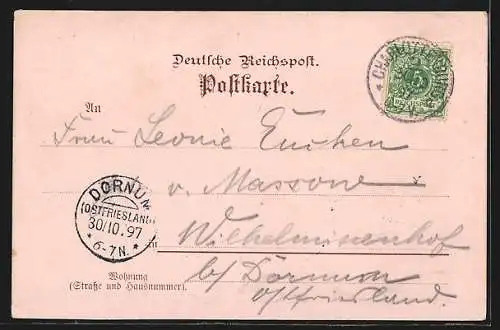 Deutsche Reichspost.
Postkarte.
CHARLOTTENBURG
5
An
Frau Leonie
v. Massow
DORNUM
(OSTFRIESLAND)
30/10.97
* 6-7N. *
in Wilhelminenhof
Wohnung
(Straße und Hausnummer)
b/ Dornum
Ostfriesland.